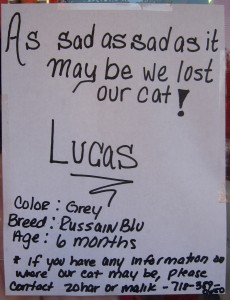 As sad as sad as it
may be we lost
our cat!
Lucas
Color: Grey
Breed: Russain Blu
Age: 6 months
* If you have any information on
where our cat may be, please
contact zohar or malik - 718-